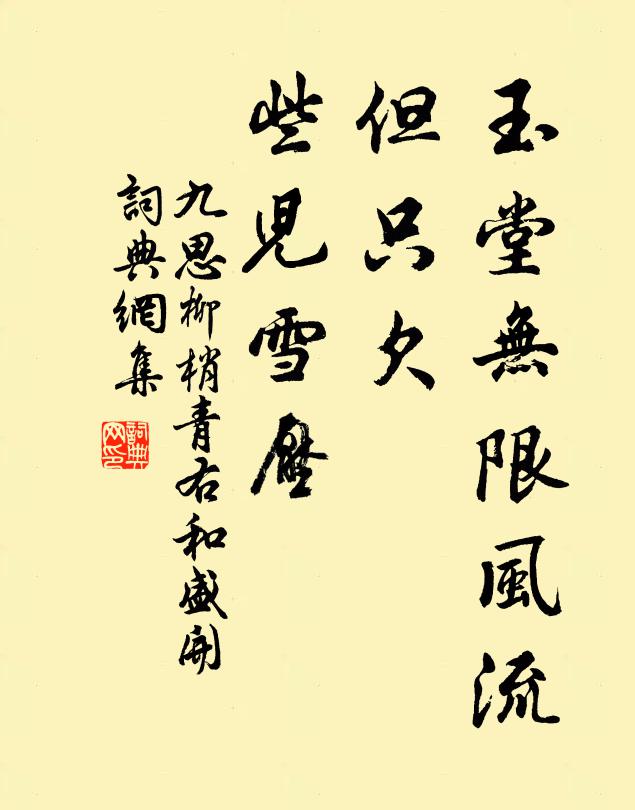 玉堂無限風流
但只欠
些児雪壓
九思柳梢青右和盛開
詞典網集
詞典
网印